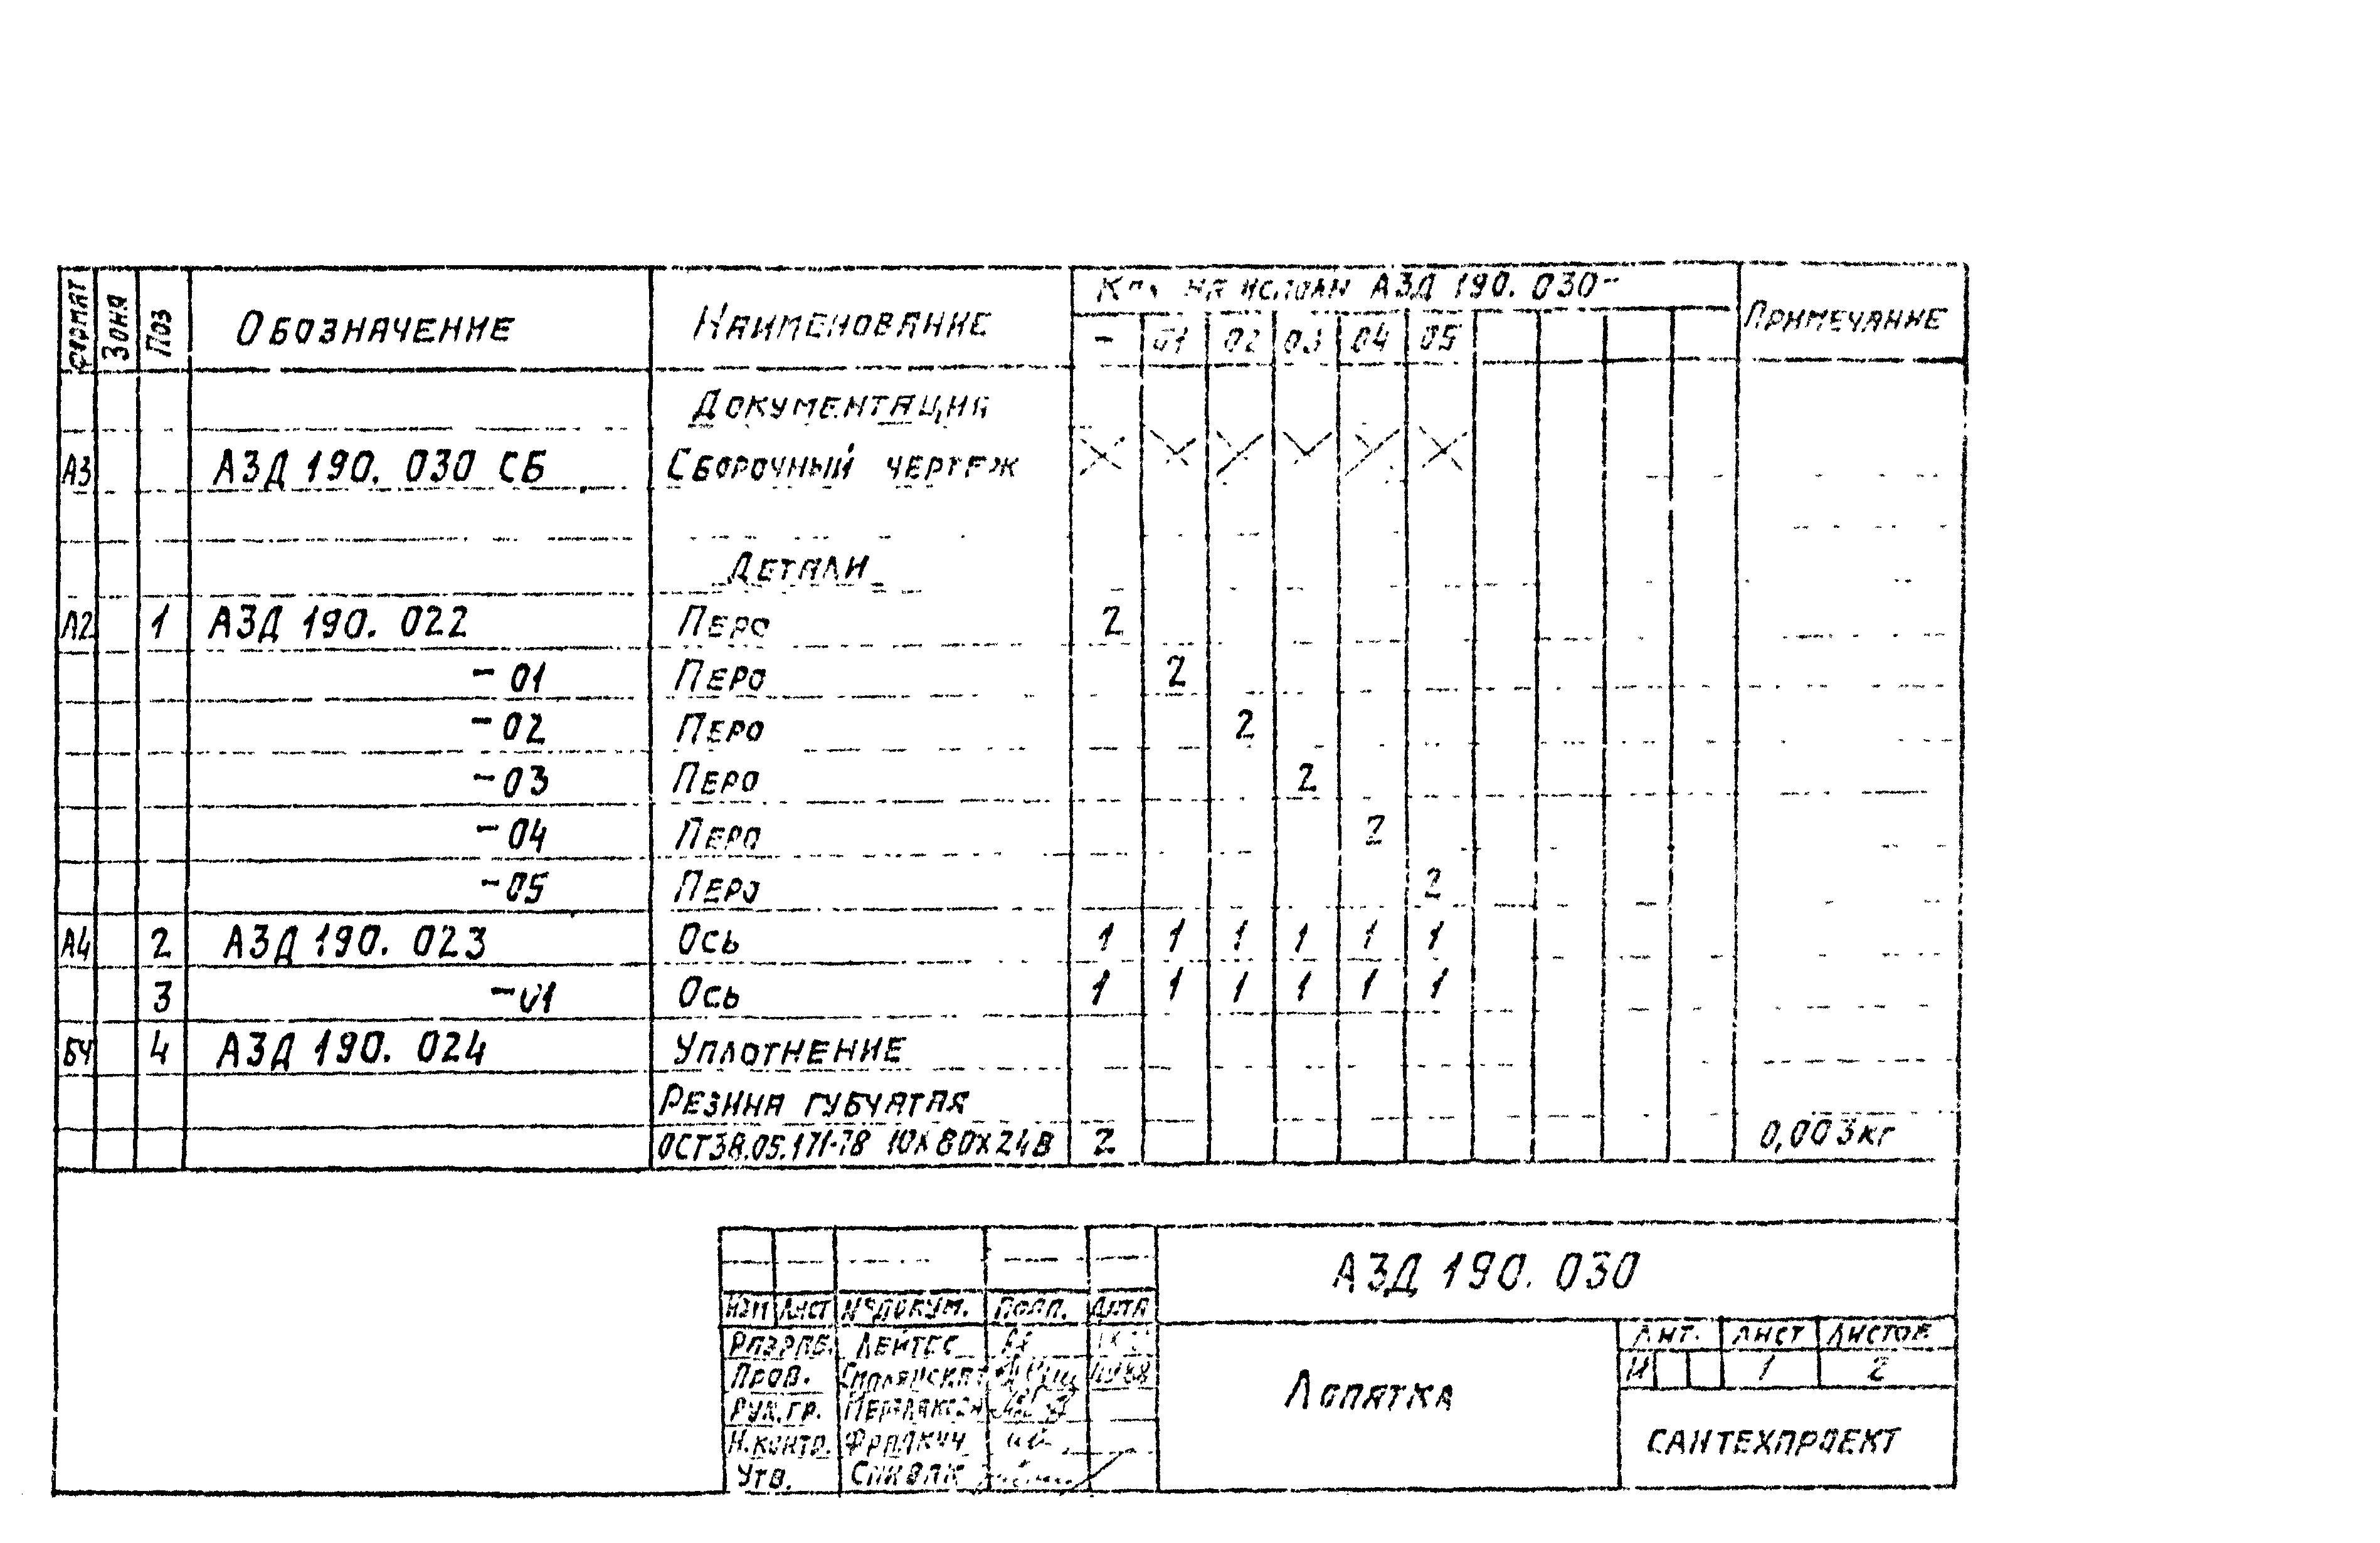 Формат Зона Поз Обозначение Наименование Кол на исполн АЗД 190. 030- Примечание
- 01 02 03 04 05
Документация
А3 АЗД 190. 030 СБ Сборочный чертеж X X X X X X
Детали
А2 1 АЗД 190. 022 Перо 2
-01 Перо 2
-02 Перо 2
-03 Перо 2
-04 Перо 2
-05 Перо 2
А4 2 АЗД 190. 023 Ось 1 1 1 1 1 1
3 -01 Ось 1 1 1 1 1 1
БЧ 4 АЗД 190. 024 Уплотнение
Резина губчатая
ОСТ38.05.171-78 10х80х248 2 0,003кг
АЗД 190. 030
Изм Лист №докум. Подп. Дата
Лопатка
Лит. Лист Листов
И 1 2
Разраб. Лейтес
Пров.
Рук.гр.
Н.контр.
Утв. Спивак
САНТЕХПРОЕКТ